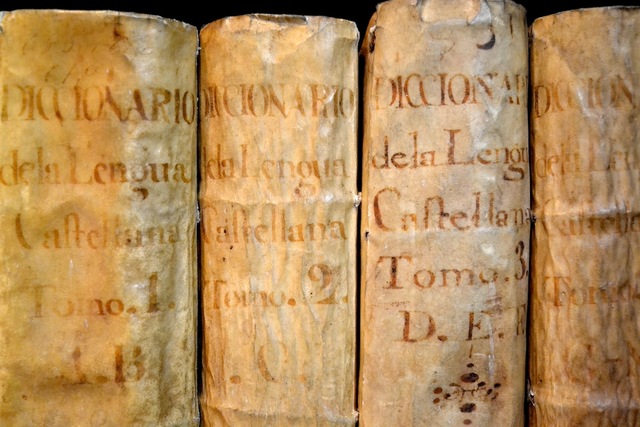 DICCIONARIO
dela Lengua
Castellana
Tomo.1.
A.B
DICCIONARIO
dela Lengua
Castellana
Tomo.2.
.C.
DICCIONAR
dela Lengu
Castellana
Tomo.3.
D.E.F
DICCION
dela Len
Castella
Tomo